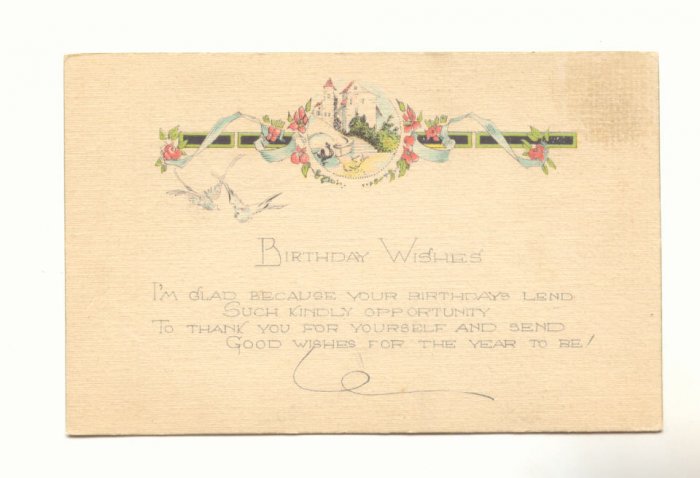 BIRTHDAY WISHES
I'M GLAD BECAUSE YOUR BIRTHDAYS LEND
SUCH KINDLY OPPORTUNITY
TO THANK YOU FOR YOURSELF AND SEND
GOOD WISHES FOR THE YEAR TO BE!